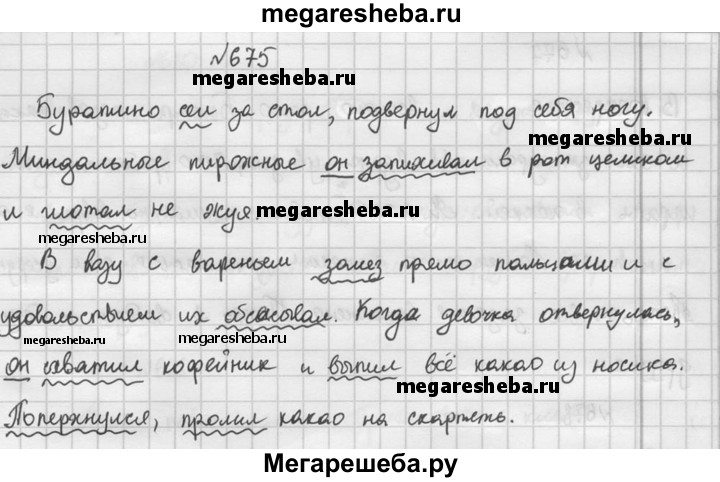 megaresheba.ru
№675
megaresheba.ru
Буратино сел за стол, подвернул под себя ногу.
megaresheba.ru
Миндальные пирожные он запихивал в рот целиком
и глотал не жуя.
megaresheba.ru
megaresheba.ru
В вазу с вареньем залез прямо пальцами и с
удовольствием их обсасывал. Когда девочка отвернулась,
megaresheba.ru
megaresheba.ru
он схватил кофейник и выпил всё какао из носика.
megaresheba.ru
Поперхнулся, пролил какао на скатерть.
Мегарешеба.ру